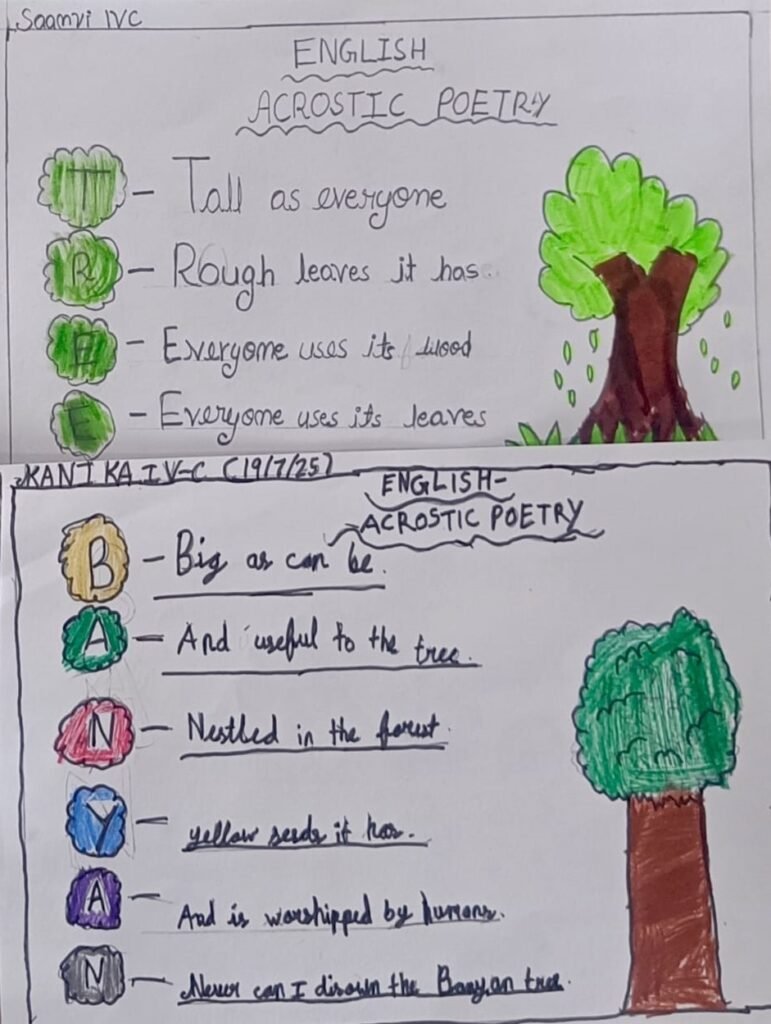 Saanvi IVC
ENGLISH
ACROSTIC POETRY
T - Tall as everyone
R - Rough leaves it has
E - Everyone uses its wood
E - Everyone uses its leaves
KANIKA IV-C (19/7/25)
ENGLISH-
ACROSTIC POETRY
B - Big as can be.
A - And useful to the tree.
N - Nestled in the forest.
Y - yellow seeds it has.
A - And is worshipped by humans.
N - Never can I disown the Banyan tree.